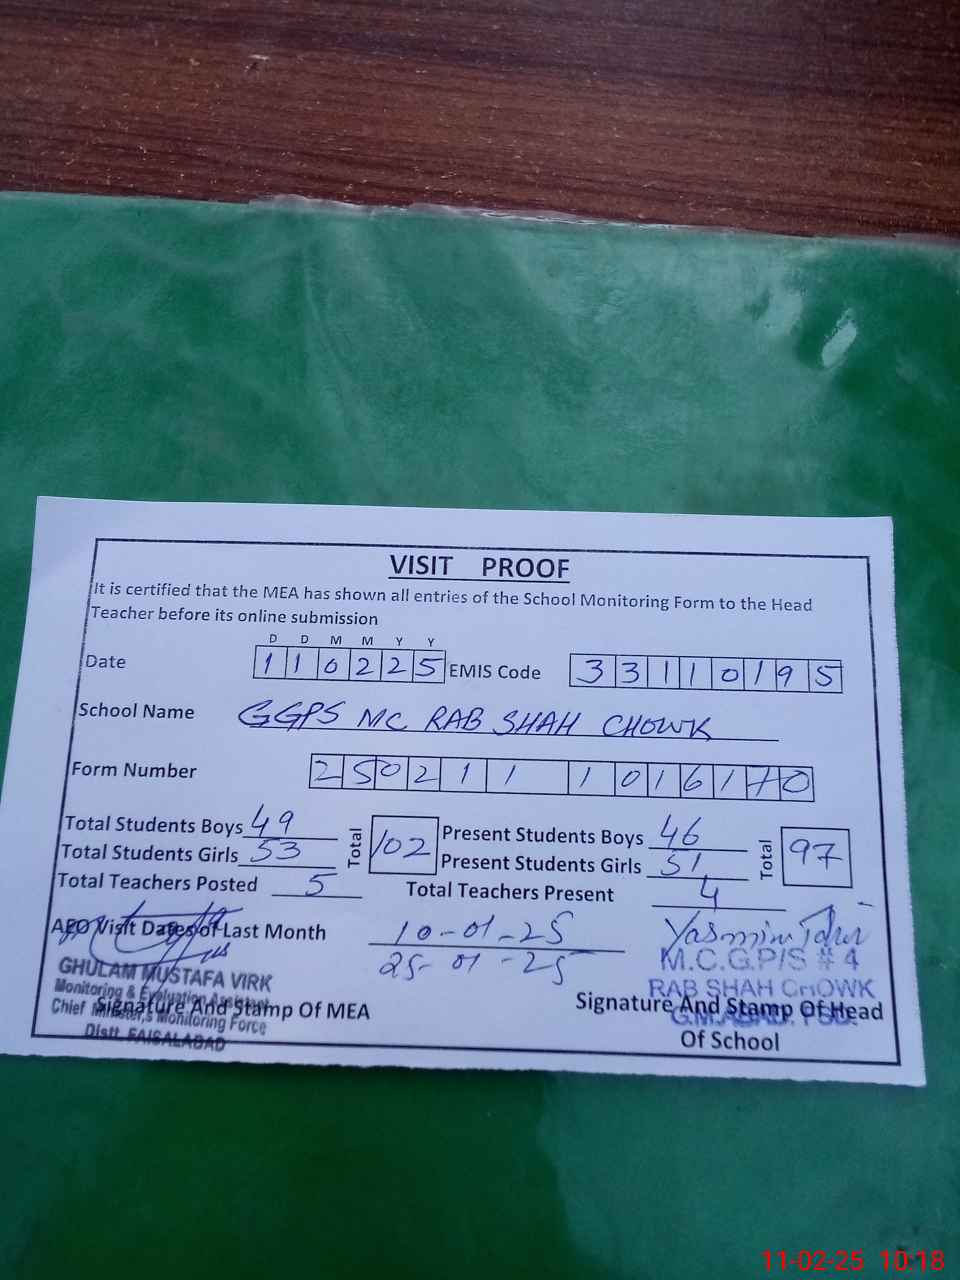 VISIT PROOF
It is certified that the MEA has shown all entries of the School Monitoring Form to the Head
Teacher before its online submission
D D M M Y Y
Date 1 1 0 2 2 5 EMIS Code 3 3 1 1 0 1 9 5
School Name GGPS MC RAB SHAH CHOWK
Form Number 2 5 0 2 1 1 1 0 1 6 1 0
Total Students Boys 49 Total 102 Present Students Boys 46 Total 97
Total Students Girls 53 Present Students Girls 51
Total Teachers Posted 5 Total Teachers Present 4
AEO Visit Dates of Last Month 10-01-25
25-01-25
Yasmin
GHULAM MUSTAFA VIRK
Monitoring & Evaluation Assistant
Chief Minister,s Monitoring Force
Distt. FAISALABAD
Signature And Stamp Of MEA
M.C.G.P/S # 4
RAB SHAH CHOWK
Signature And Stamp Of Head
Of School
11-02-25 10:18